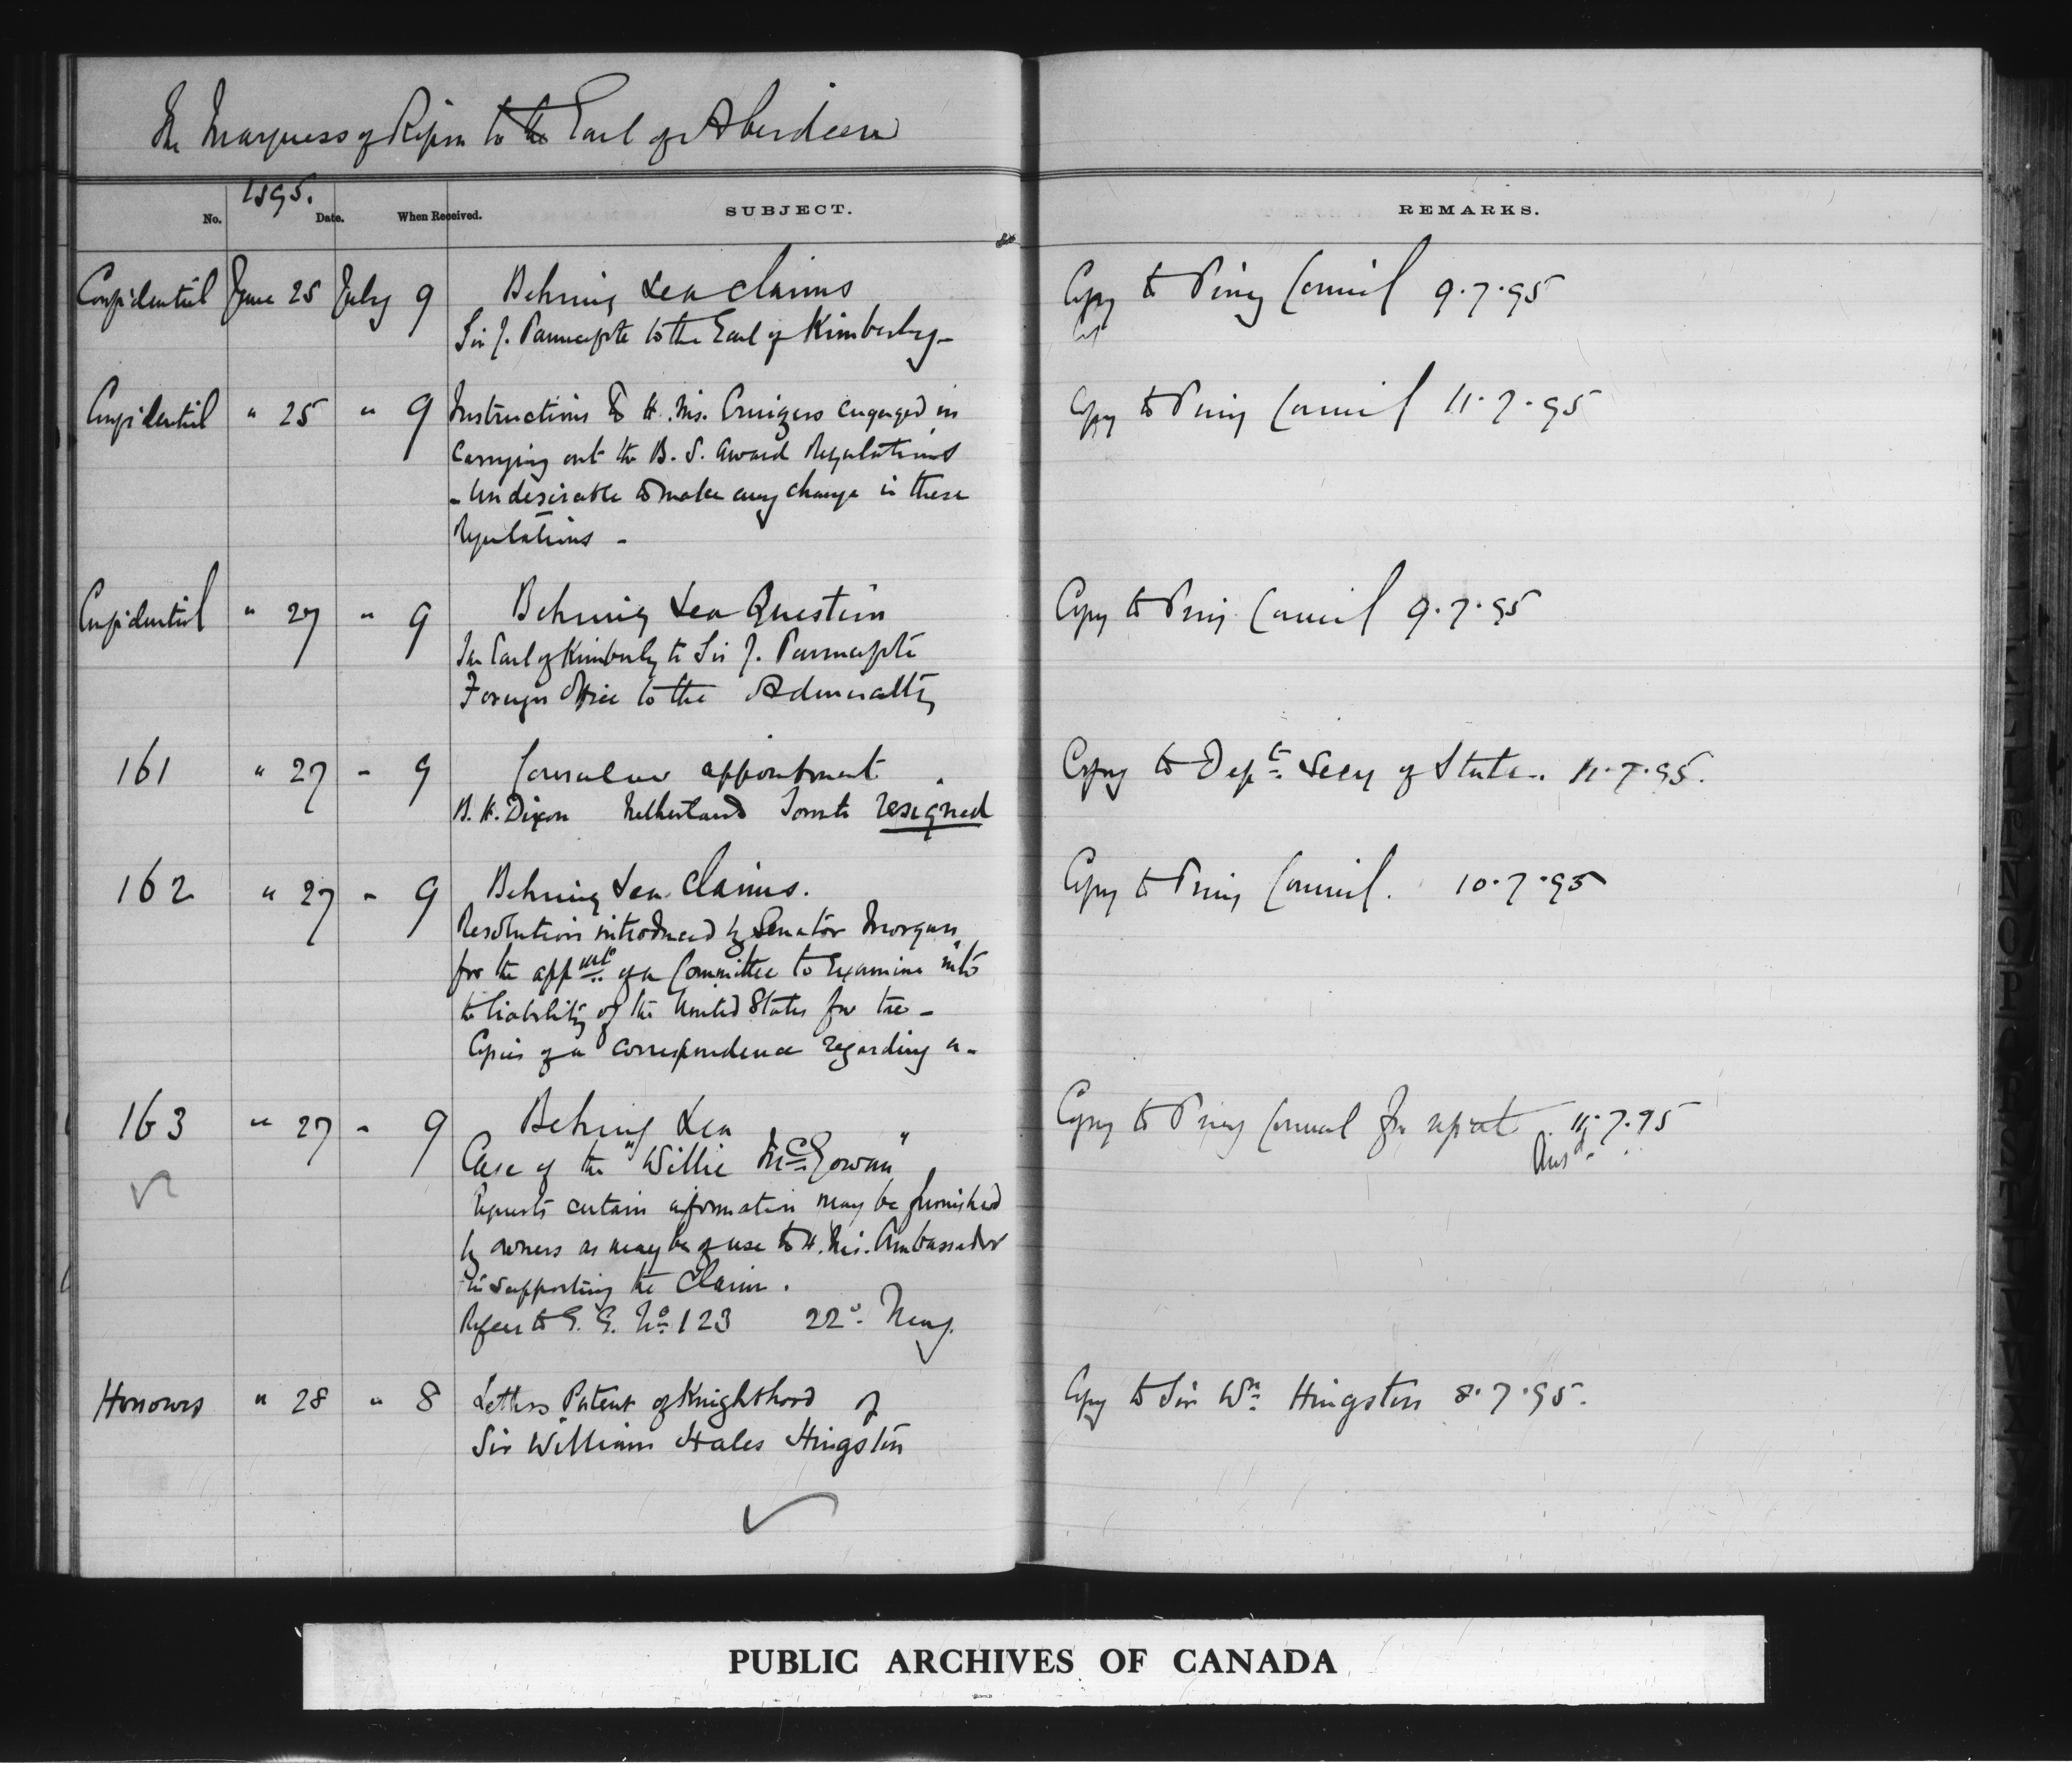 The Marquess of Ripon to the Earl of Aberdeen
1895.
No. Date. When Received. SUBJECT. REMARKS.
Confidential June 25 July 9 Behring Sea Claims Copy to Privy Council 9.7.95
Sir J. Pauncefote to the Earl of Kimberley -
Confidential " 25 " 9 Instructions to H. Ms. Cruizers engaged in Copy to Privy Council 11.7.95
carrying out the B. S. award Regulations
- Undesirable to make any change in these
Regulations -
Confidential " 27 " 9 Behring Sea Question Copy to Privy Council 9.7.95
The Earl of Kimberley to Sir J. Pauncefote
Foreign Office to the Admiralty
161 " 27 - 9 Consular appointment Copy to Dept. Secy of State. 11.7.95.
B. H. Dixon Netherlands Toronto resigned
162 " 27 - 9 Behring Sea Claims. Copy to Privy Council. 10.7.95
Resolution introduced by Senator Morgan
for the appmt. of a Committee to Examine into
the liability of the United States for the -
Copies of a correspondence regarding a -
163 " 27 - 9 Behring Sea Copy to Privy Council for report 11.7.95
Ansd.
Case of the "Willie McGowan"
Requests certain information may be furnished
by owners as may be of use to H. Ms. Ambassador
in supporting the Claim.
Refers to G. G. No. 123 22d. May.
Honours " 28 " 8 Letters Patent of Knighthood of Copy to Sir Wm. Hingston 8.7.95.
Sir William Hales Hingston
PUBLIC ARCHIVES OF CANADA